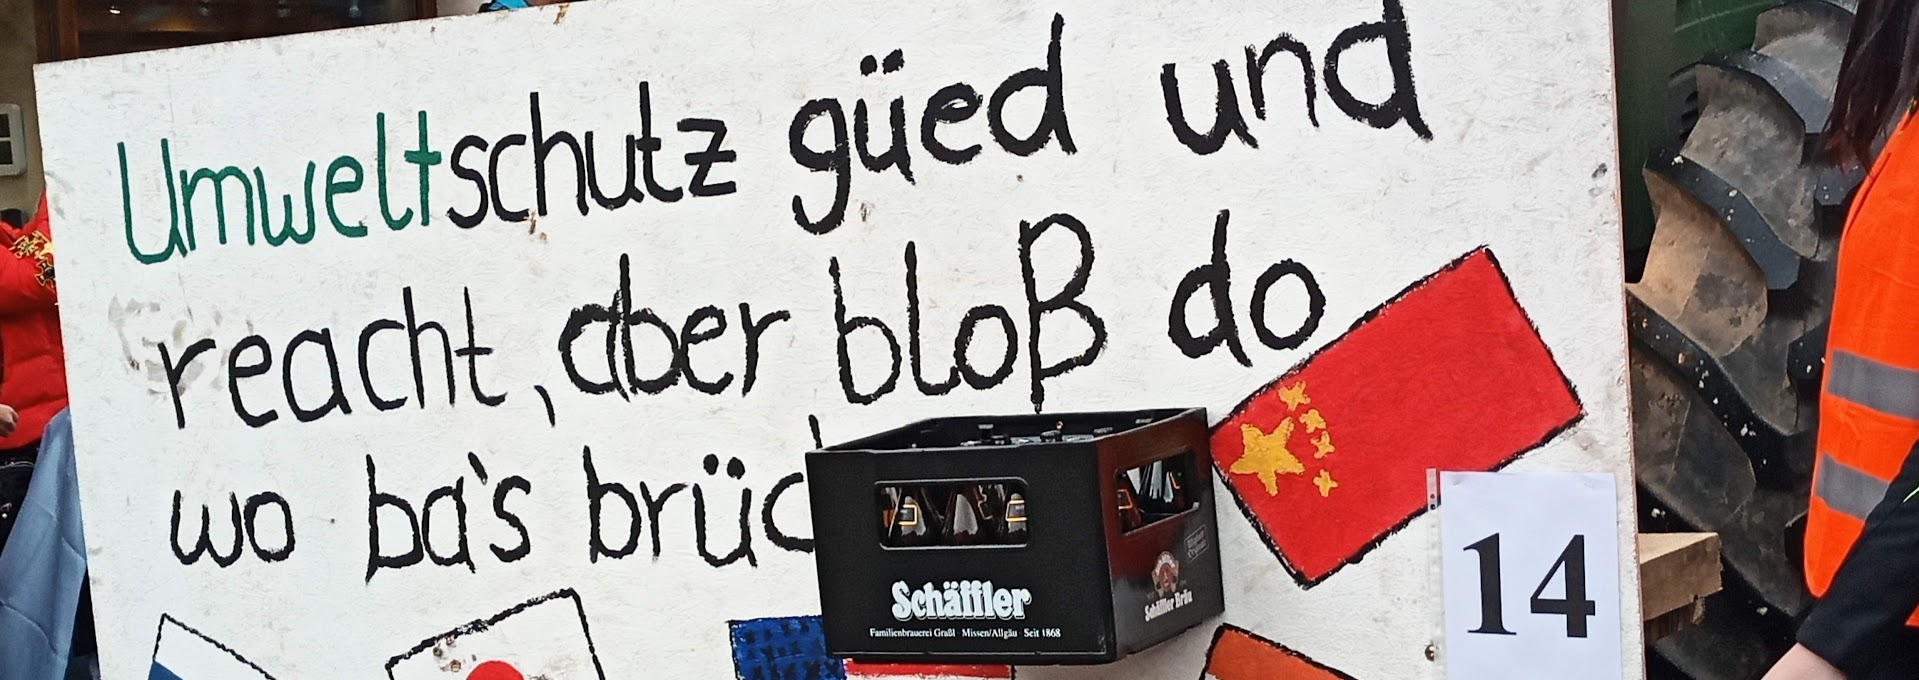 Umweltschutz güed und
reacht, aber bloß do
wo ba's
Schäffler
Familienbrauerei Graßl Missen/Allgäu Seit 1868
Schäffler Bräu
14